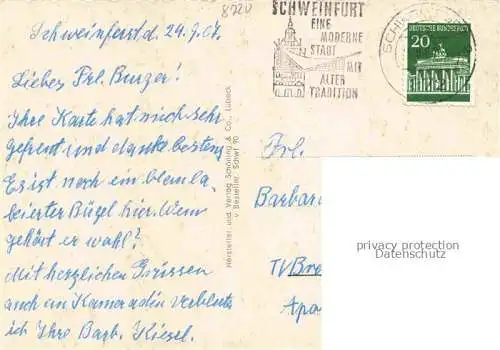 8720
Schweinfurt d. 29.9.67.
Liebes Frl. Burger!
Ihre Karte hat mich sehr
gefreut und danke bestens
Es ist noch ein blau la-
ckierter Bügel hier. Wem
gehört er wohl?
Mit herzlichen Grüssen
auch an Kameradin verbleibe
ich Ihre Barb. Kiesel.
SCHWEINFURT
EINE
MODERNE
STADT
MIT
ALTER
TRADITION
DEUTSCHE BUNDESPOST
20
Hersteller und Verlag Schöning & Co., Lübeck
Frl.
Barbara
Apo
privacy protection
Datenschutz